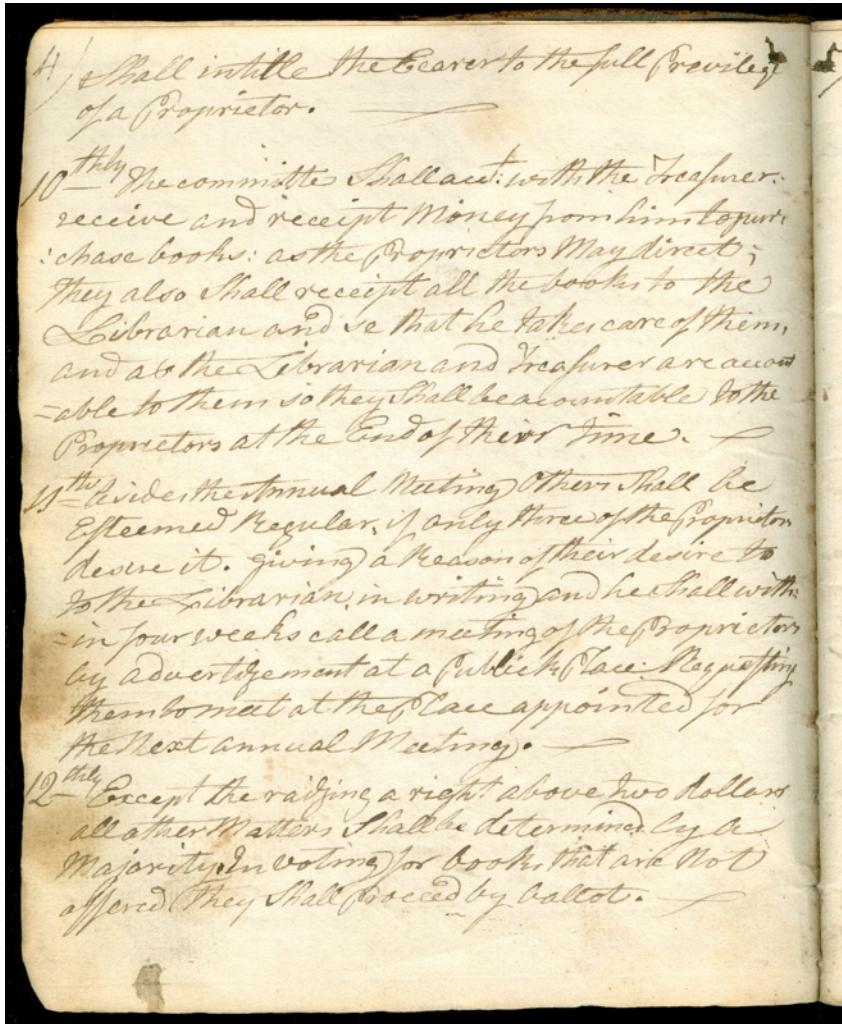 4)
Shall intitle the Bearer to the full Privilege
of a Proprietor.
10thly The committe Shall acct: with the Treasurer.
receive and receipt Money from him to pur:
:chase books: as the Proprietors May direct;
They also Shall receipt all the books to the
Librarian and se that he takes care of them,
and as the Librarian and Treasurer are accou
=able to them so they Shall be acountable to the
Proprietors at the End of their time.
11th Besides the Annual Meeting Others Shall be
Esteemed Regular, if only three of the Proprietors
desire it. giving a Reason of their desire to
to the Librarian, in writing and he Shall with:
=in four weeks call a meeting of the Proprietors
by advertizement at a Publick Place. Requesting
them to meet at the Place appointed for
the Next annual Meeting.
12thly Except the raising a right above two dollars
all other Matters Shall be determined by a
Majority. In voting for books that are Not
offered they Shall proceed by ballot.